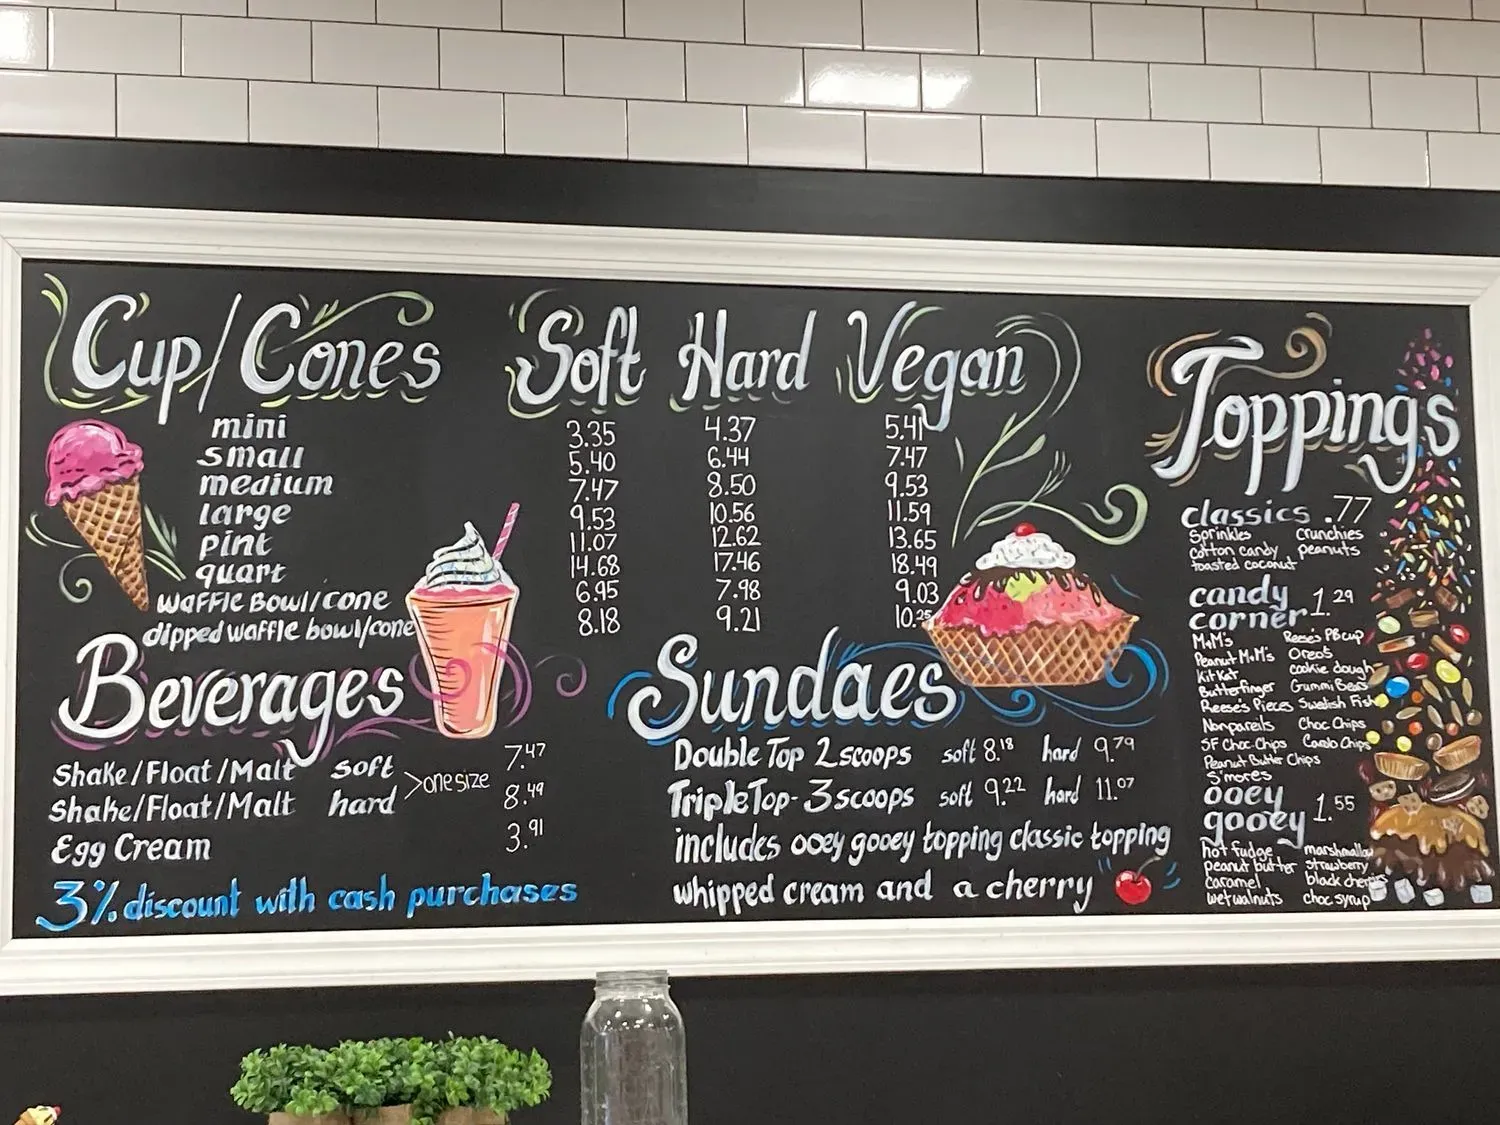 Cup/Cones Soft Hard Vegan
mini 3.35 4.37 5.41
small 5.40 6.44 7.47
medium 7.47 8.50 9.53
large 9.53 10.56 11.59
pint 11.07 12.62 13.65
quart 14.68 17.46 18.49
waffle bowl/cone 6.95 7.98 9.03
dipped waffle bowl/cone 8.18 9.21 10.25
Beverages
Shake/Float/Malt soft >one size 7.47
Shake/Float/Malt hard 8.49
Egg Cream 3.91
3% discount with cash purchases
Sundaes
Double Top 2 scoops soft 8.18 hard 9.79
Triple Top - 3 scoops soft 9.22 hard 11.07
includes ooey gooey topping classic topping
whipped cream and a cherry
Toppings
classics .77
Sprinkles crunchies
cotton candy peanuts
toasted coconut
candy
corner 1.29
M&M's Reese's PB cup
Peanut M&M's Oreo's
Kit Kat cookie dough
Butterfinger Gummi Bears
Reese's Pieces Swedish Fish
Nonpareils Choc Chips
SF Choc Chips Carob Chips
Peanut Butter Chips
S'mores
ooey
gooey 1.55
hot fudge marshmallow
peanut butter strawberry
caramel black cherries
wet walnuts choc syrup